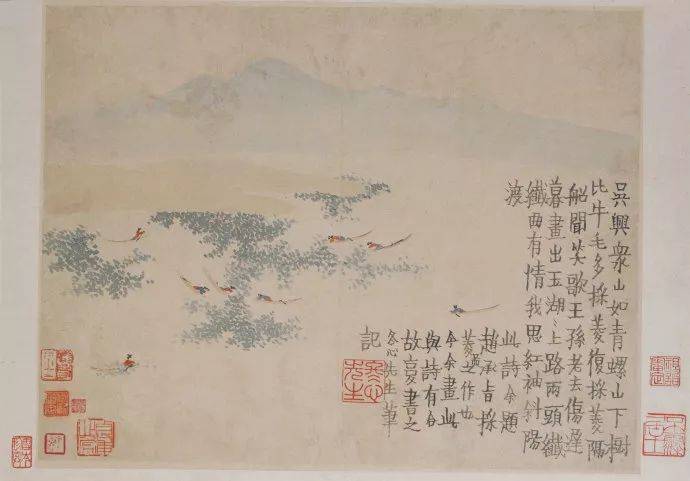 吳興衆山如青螺山下樹
比牛毛多採菱復採菱隔
船聞笑歌王孫老去傷遲
暮畫出玉湖〻上路兩頭纖
纖曲有情我思紅袖斜陽
渡
此詩余題
趙承旨採
菱圖之作也
今余畫此
與詩有合
故复書之
冬心先生筆
記
冬心先生